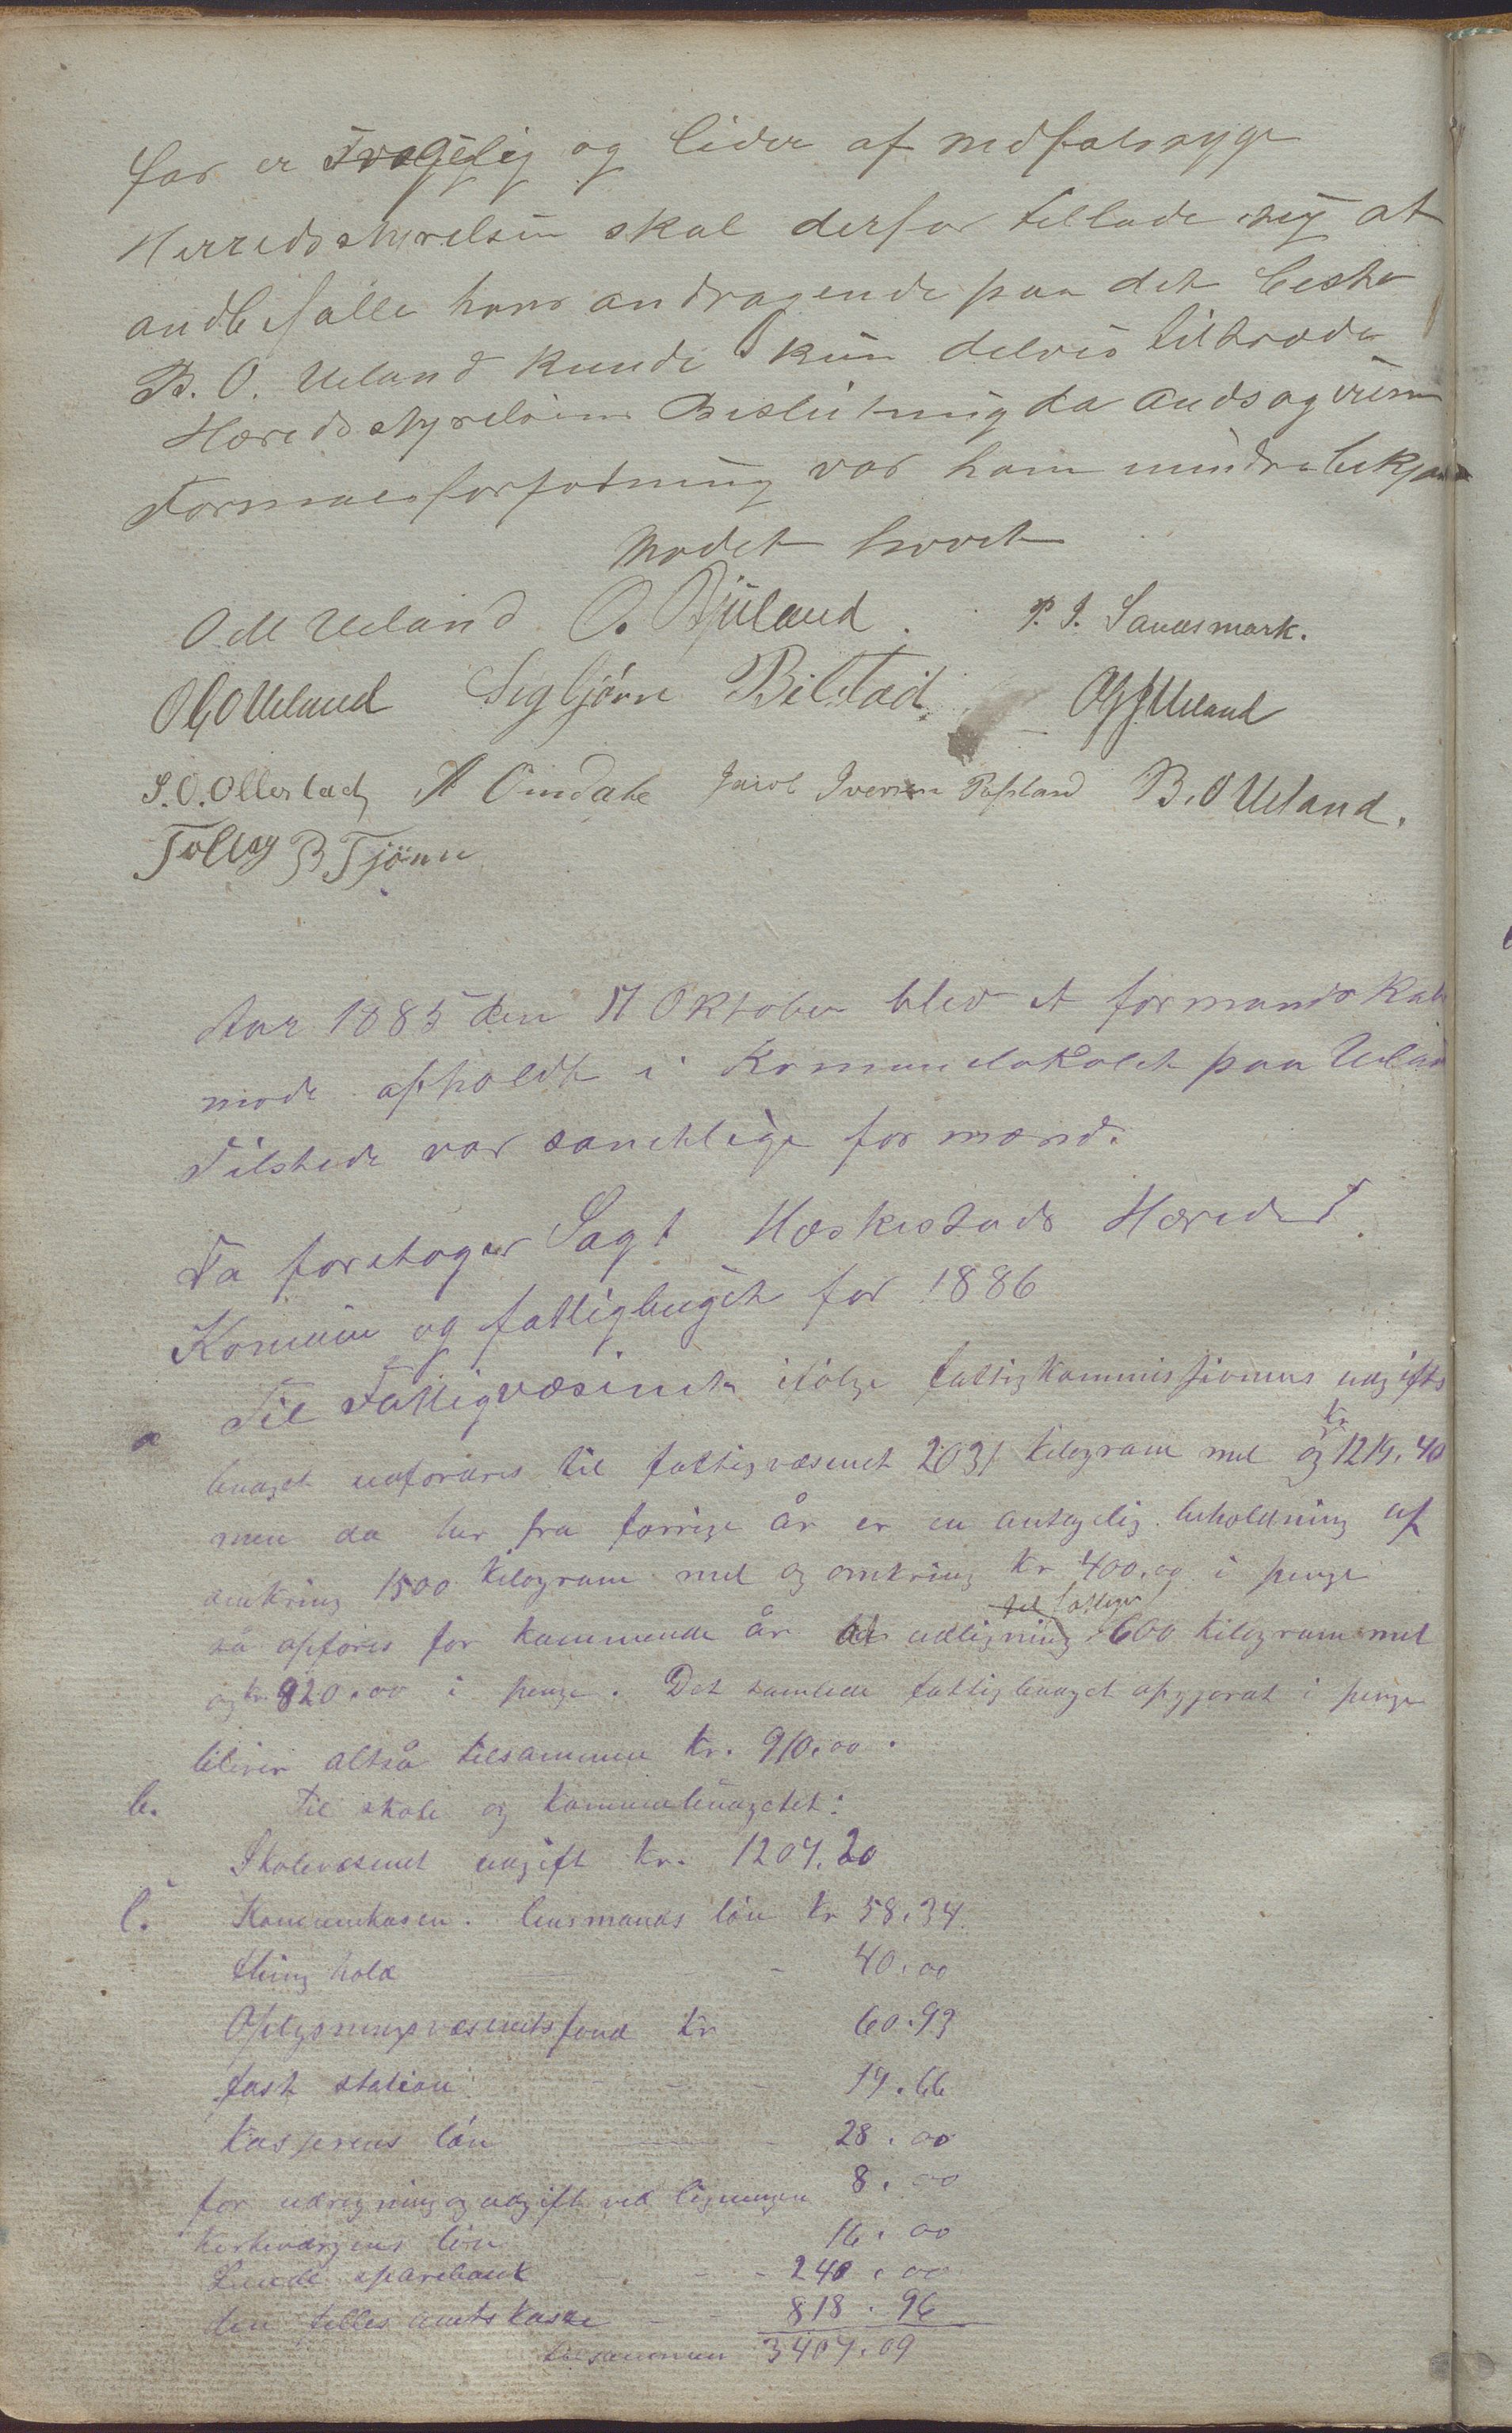 far er svagelig og lider af nedfalssyge
Herredsstyrelsen skal derfor tillade sig at
andbefalle hans andragende paa det beste
B. O. Ueland kunde kun delvis tiltræde
Hæredsstyrelsens Beslutning da andsøgerens
Formuesforfatning var ham mindre bekjent
Mødet hævet
O M Ueland O. Bjuland. P. J. Sandsmark.
O G O Ueland Sigbjørn Bilstad. Ueland
S. O. Ollestad A Omdahl Jacob Iversen B. O Ueland.
Tollag B Tjønn
Aar 1885 den 17 Oktober blev et formandskabs
møde afholdt i Komunelokalet paa Ueland
Tilstede var samtlige formænd.
Da foretoges Sag 1 Heskestads Hæreds
Komune og fattigbuget for 1886
a Til Fattigvæsenet ifølge fattigkommissionens udgifts
budget udfordres til fattigvæsenet 2031 kilogram mel og kr 1219.40
men da der fra forrige år er en antagelig beholdning af
omkring 1500 kilogram mel og omkring kr 400.00 i penge
så opføres for kommende år at udligning til fattige 600 kilogram mel
og kr. 820.00 i penge. Det samlede fattigbudget opgjørat i penge
bliver altså tilsammen kr. 910.00.
b. Til skole og kommunebudgetet:
Skolevæsenet udgift kr. 1207.20
c. Komunekasen. lensmands løn kr 58.34
thinghold - 40.00
Oplysningsvæsenets fond kr 60.93
fast station - - - 19.66
kasserens løn - 28.00
for udregning og udgift ved ligningen 8.00
kirkeværgens løn 16.00
Lunde sparebank - - - 240.00
den felles amtskasse - - 818.96
tilsammen 3407.09